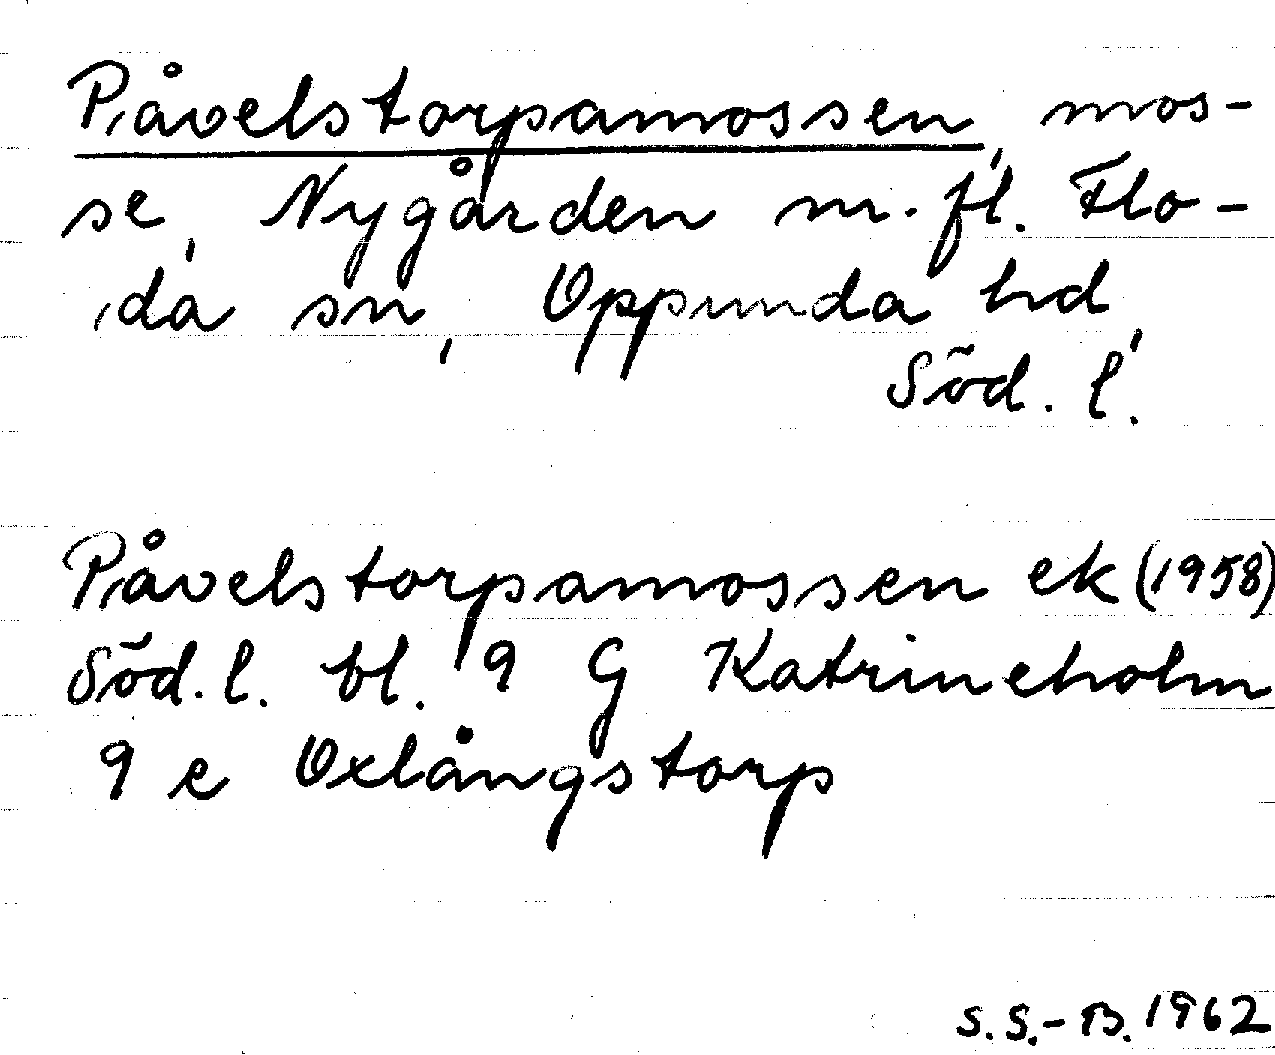 Påvelstorpamossen, mos-
se, Nygården m. fl. Flo-
da sn, Oppunda hd,
Söd. l.
Påvelstorpamossen ek (1958)
Söd. l. bl. 9 G Katrineholm
9 e Oxlångstorp
S. S.-B. 1962